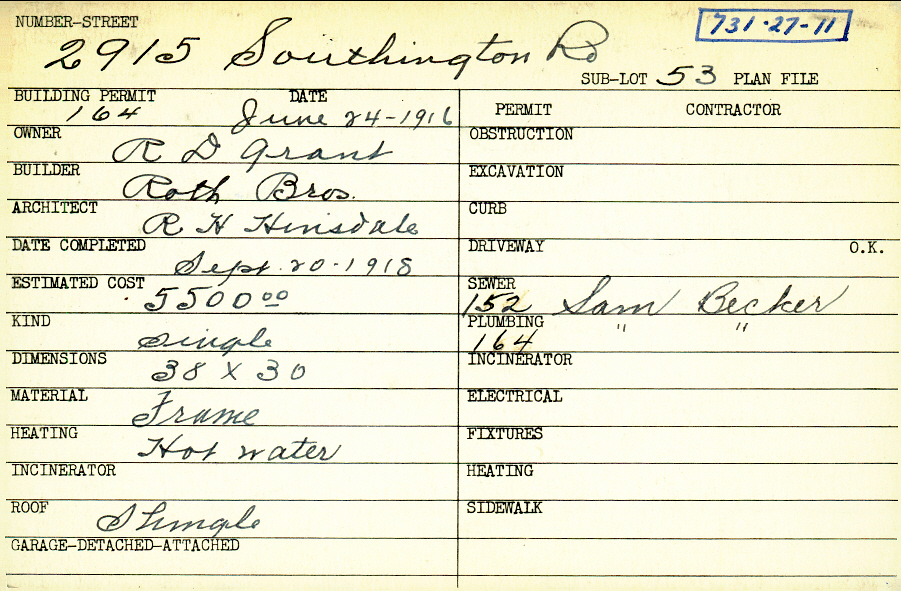 NUMBER-STREET
731-27-11
2915 Southington Rd
SUB-LOT 53 PLAN FILE
BUILDING PERMIT DATE
164 June 24-1916
OWNER
R D Grant
BUILDER
Roth Bros.
ARCHITECT
R H Hinsdale
DATE COMPLETED
Sept. 20-1918
ESTIMATED COST
5500 00
KIND
Single
DIMENSIONS
38 X 30
MATERIAL
Frame
HEATING
Hot water
INCINERATOR
ROOF
Shingle
GARAGE-DETACHED-ATTACHED
PERMIT CONTRACTOR
OBSTRUCTION
EXCAVATION
CURB
DRIVEWAY O.K.
SEWER
152 Sam Becker
PLUMBING " "
164
INCINERATOR
ELECTRICAL
FIXTURES
HEATING
SIDEWALK